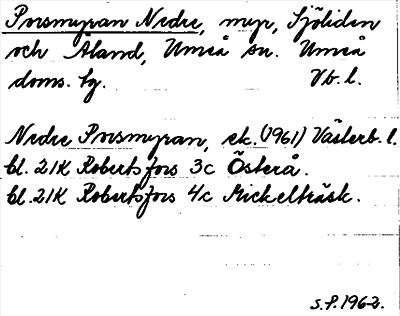 Porsmyran Nedre, myr, Sjöliden
och Åland, Umeå sn. Umeå
doms. hg. Vb. l.
Nedre Porsmyran, ek. (1961) Västerb. l.
bl. 21K Robertsfors 3c Österå.
bl. 21K Robertsfors 4c Mickelträsk.
S.P. 1962.